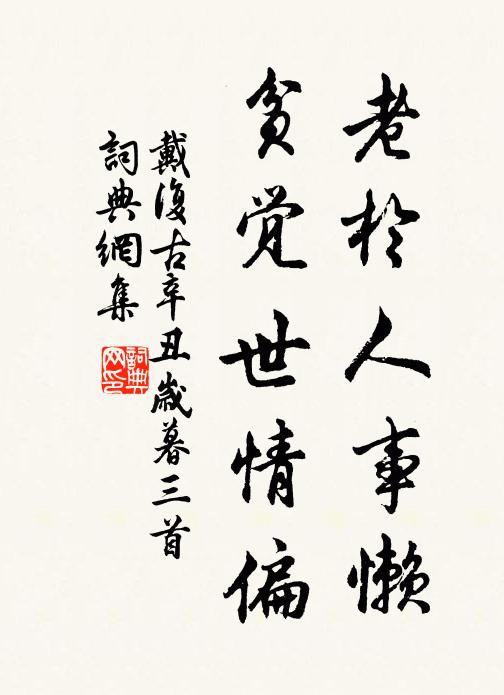 老於人事懶
貧覚世情偏
戴復古辛丑歲暮三首
詞典網集
詞典
网印